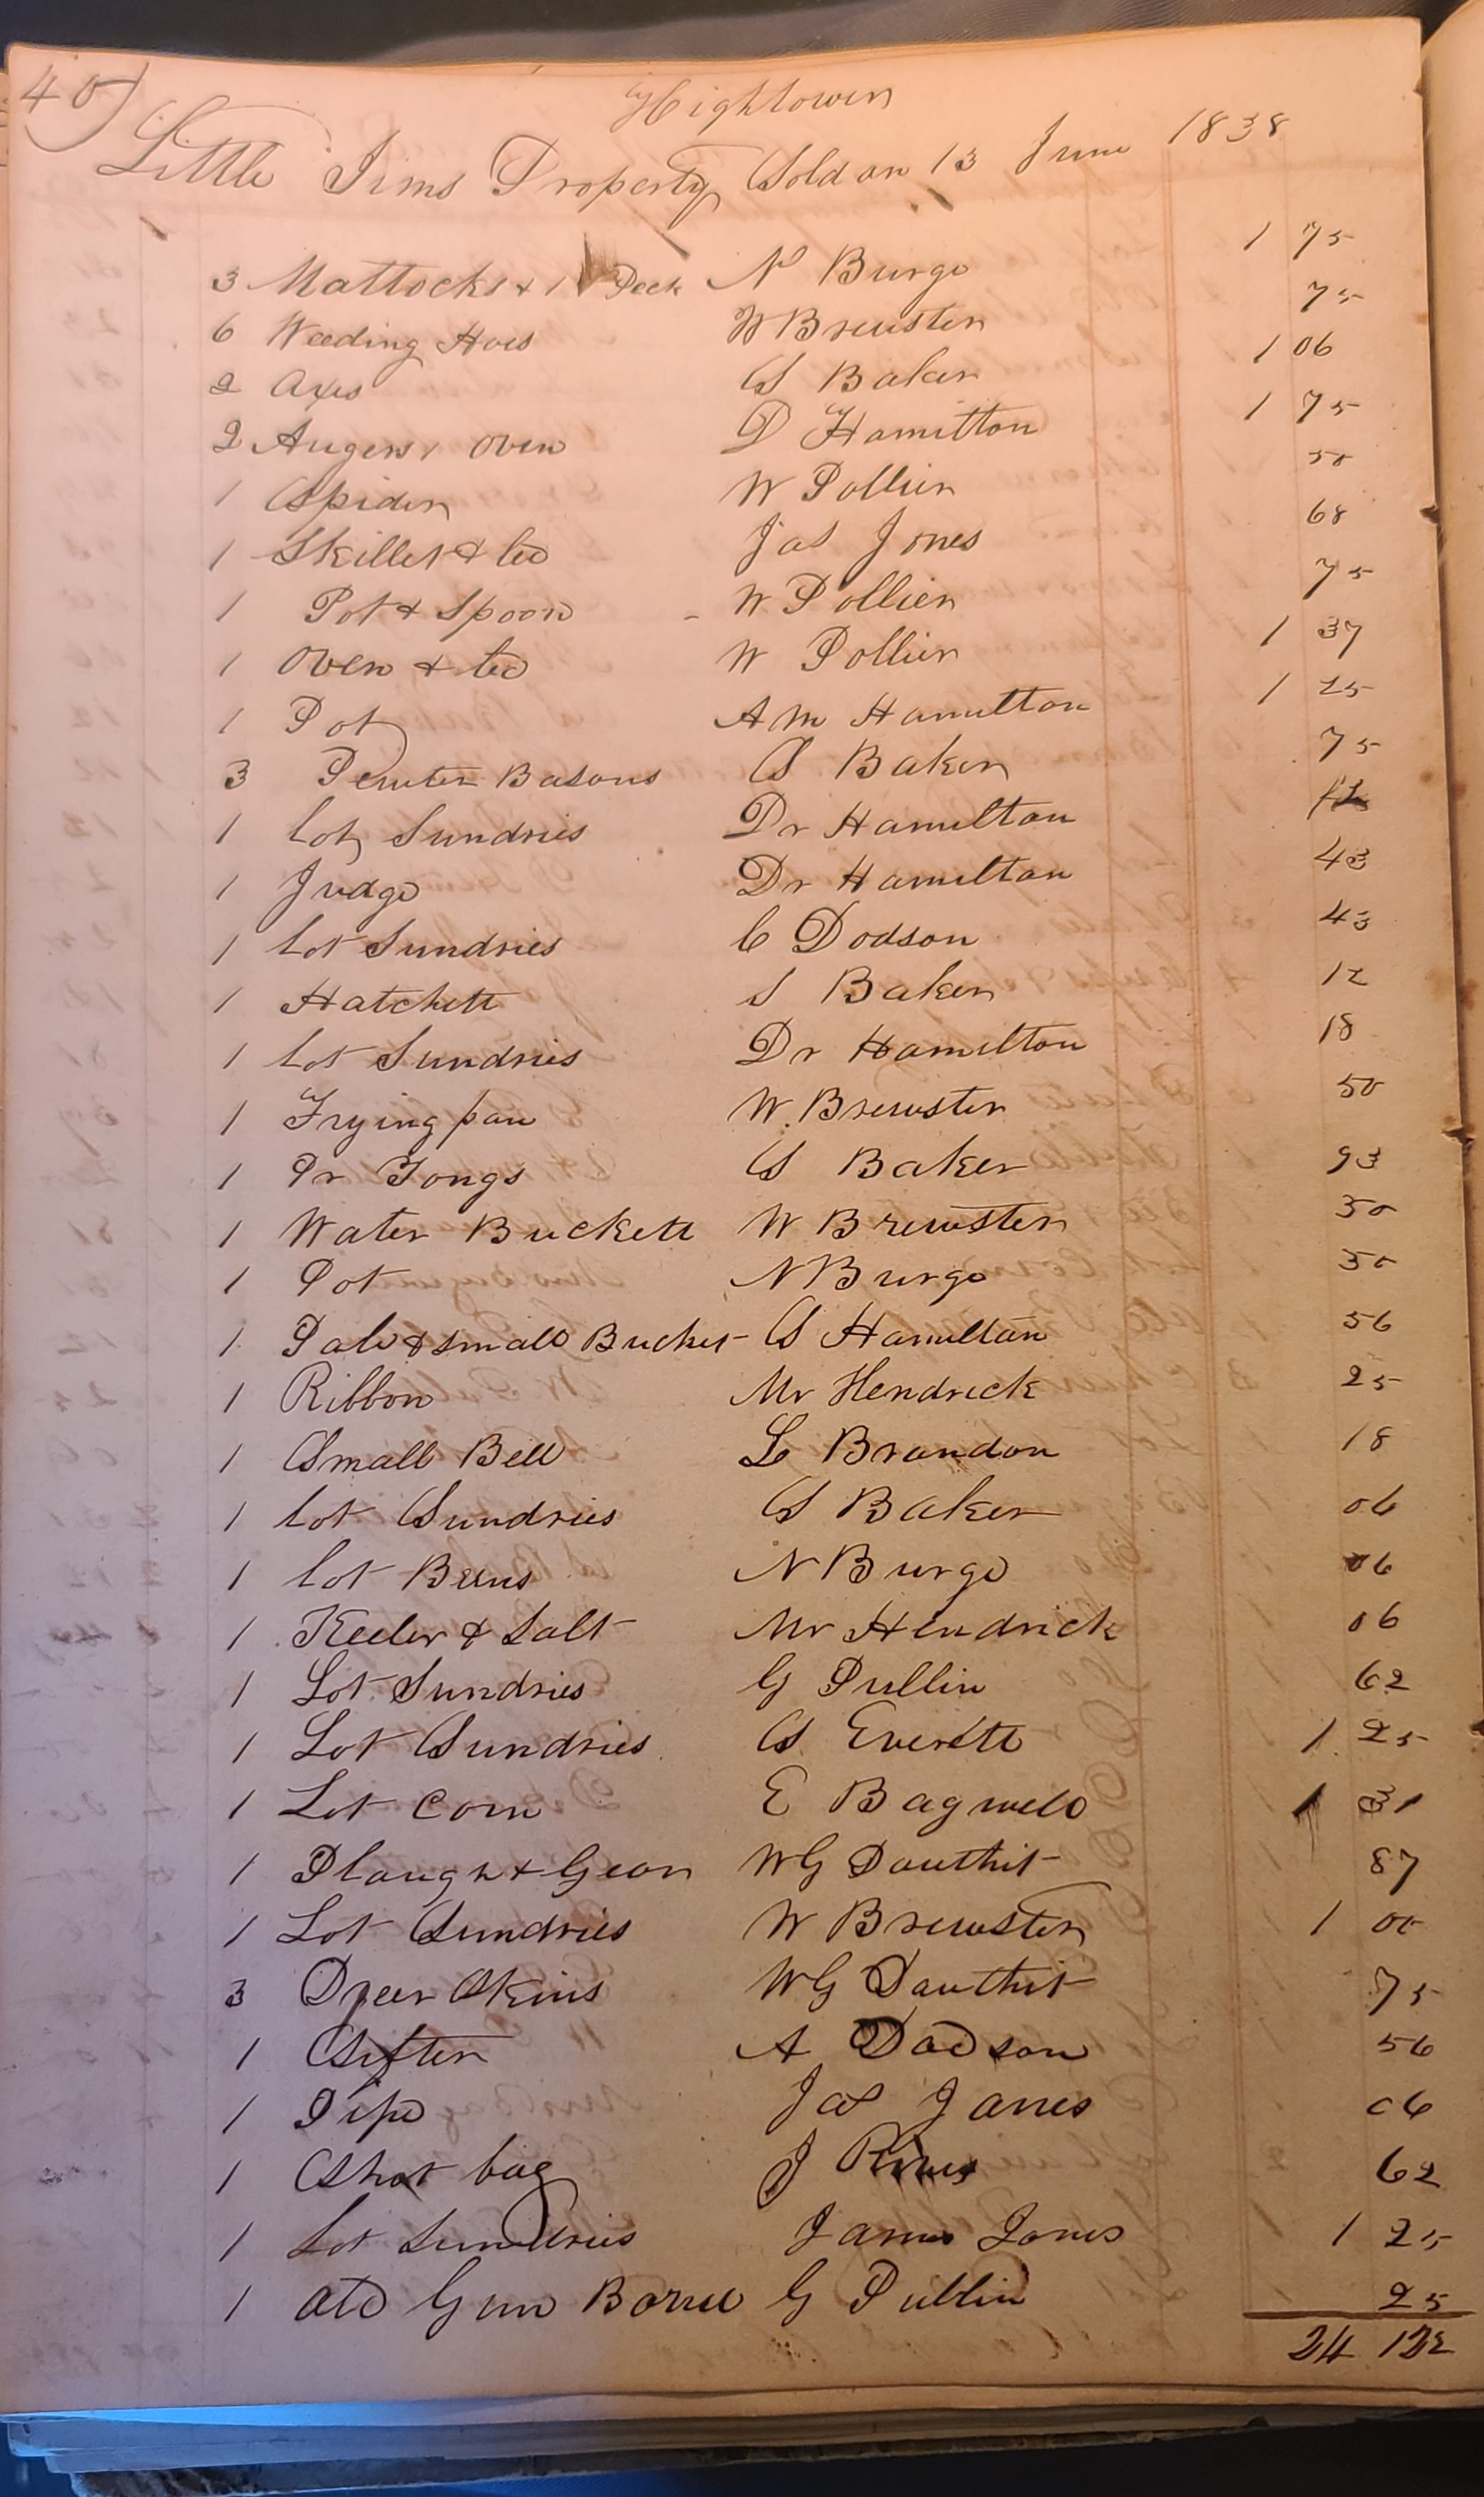 40)
Hightower
Little Jims Property Sold on 13 June 1838
3 Mattocks & 1 Peck N Burge 1 75
6 Weeding Hoes W Brewster 75
2 Axes S Baker 1 06
2 Augers 1 Oven D Hamitton 1 75
1 Spider W Pollien 50
1 Skillet & led Jas Jones 68
1 Pot & Spoon W Pollien 75
1 Oven & led W Pollien 1 37
1 Pot A M Hamilton 1 25
3 Pewter Basons S Baker 75
1 lot Sundries Dr Hamilton
1 Judge Dr Hamilton 43
1 Lot Sundries C Dodson 43
1 Hatchett S Baker 12
1 Lot Sundries Dr Hamilton 18
1 Frying pan W. Brewster 50
1 Pr Tongs S Baker 93
1 Water Buckett W Brewster 50
1 Pot N Burge 50
1 Pale & small Bucket S Hamilton 56
1 Ribbon Mr Hendrick 25
1 Small Bell L Brandon 18
1 lot Sundries S Baker 06
1 lot Beens N Burge 06
1 Keeler & Salt Mr Hendrick 06
1 Lot Sundries G Pullin 62
1 Lot Sundries S Everett 1 25
1 Lot Corn E Bagwell 1 31
1 Plough & Gear WG Douthit 87
1 Lot Sundries W Brewster 1 00
3 Deer Skins WG Douthit 75
1 Sifter A Dodson 56
1 Pipe Jas Jones 06
1 Shot bag J 62
1 Lot Sundries James Jones 1 25
1 old Gun Barrel G Pullin 25
24 12½